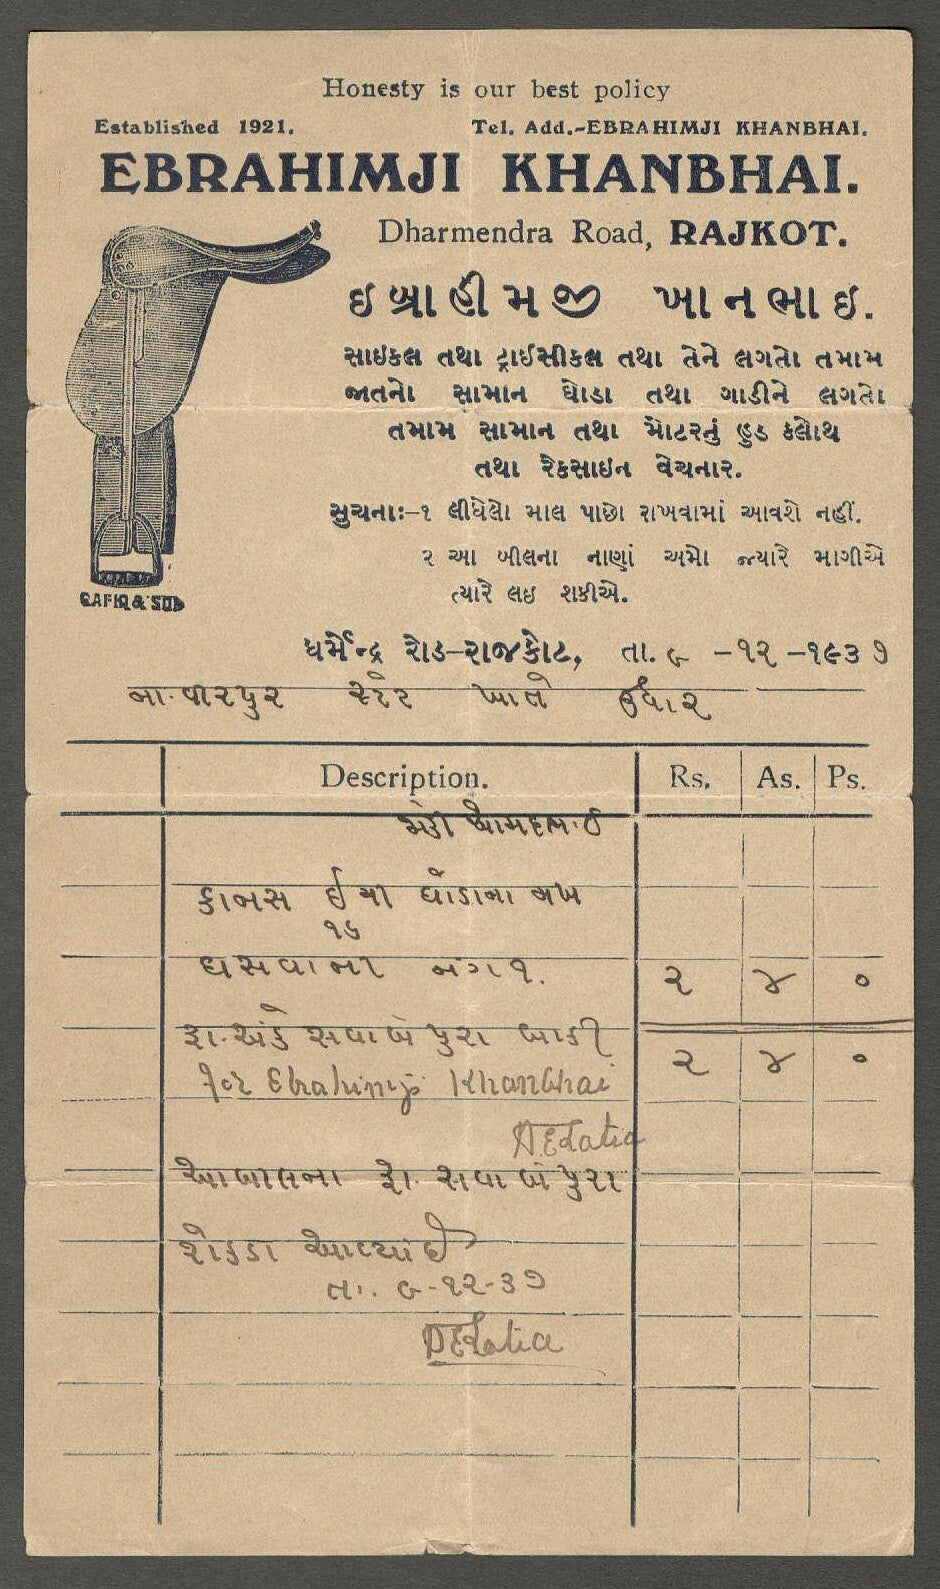 Honesty is our best policy
Established 1921. Tel. Add.-EBRAHIMJI KHANBHAI.
EBRAHIMJI KHANBHAI.
Dharmendra Road, RAJKOT.
ઇબ્રાહીમજી ખાનભાઇ.
સાઇકલ તથા ટ્રાઈસીકલ તથા તેને લગતો તમામ
જાતનો સામાન ઘોડા તથા ગાડીને લગતો
તમામ સામાન તથા મોટરનું હુડ કલોથ
તથા રેકસાઇન વેચનાર.
સુચનાઃ-૧ લીધેલો માલ પાછો રાખવામાં આવશે નહીં.
૨ આ બીલના નાણાં અમો જ્યારે માગીએ
ત્યારે લઇ શકીએ.
RAFIQ & SONS
ધર્મેન્દ્ર રોડ-રાજકોટ, તા. ૯ -૧૨ -૧૯૩૭
બા. વીરપુર સ્ટેટ ખાતે ઉધાર
Description. Rs. As. Ps.
કાનસ ઈંચી ઘોડાના નખ
૧૬
ઘસવાની નંગ ૧. ૨ ૪ ૦
રૂા. અંકે સવાબે પુરા બાકી ૨ ૪ ૦
for Ebrahimji Khanbhai
AELatia
આ બીલના રૂા. સવા બે પુરા
રોકડા આવ્યા છે
તા. ૯-૧૨-૩૭
AELatia